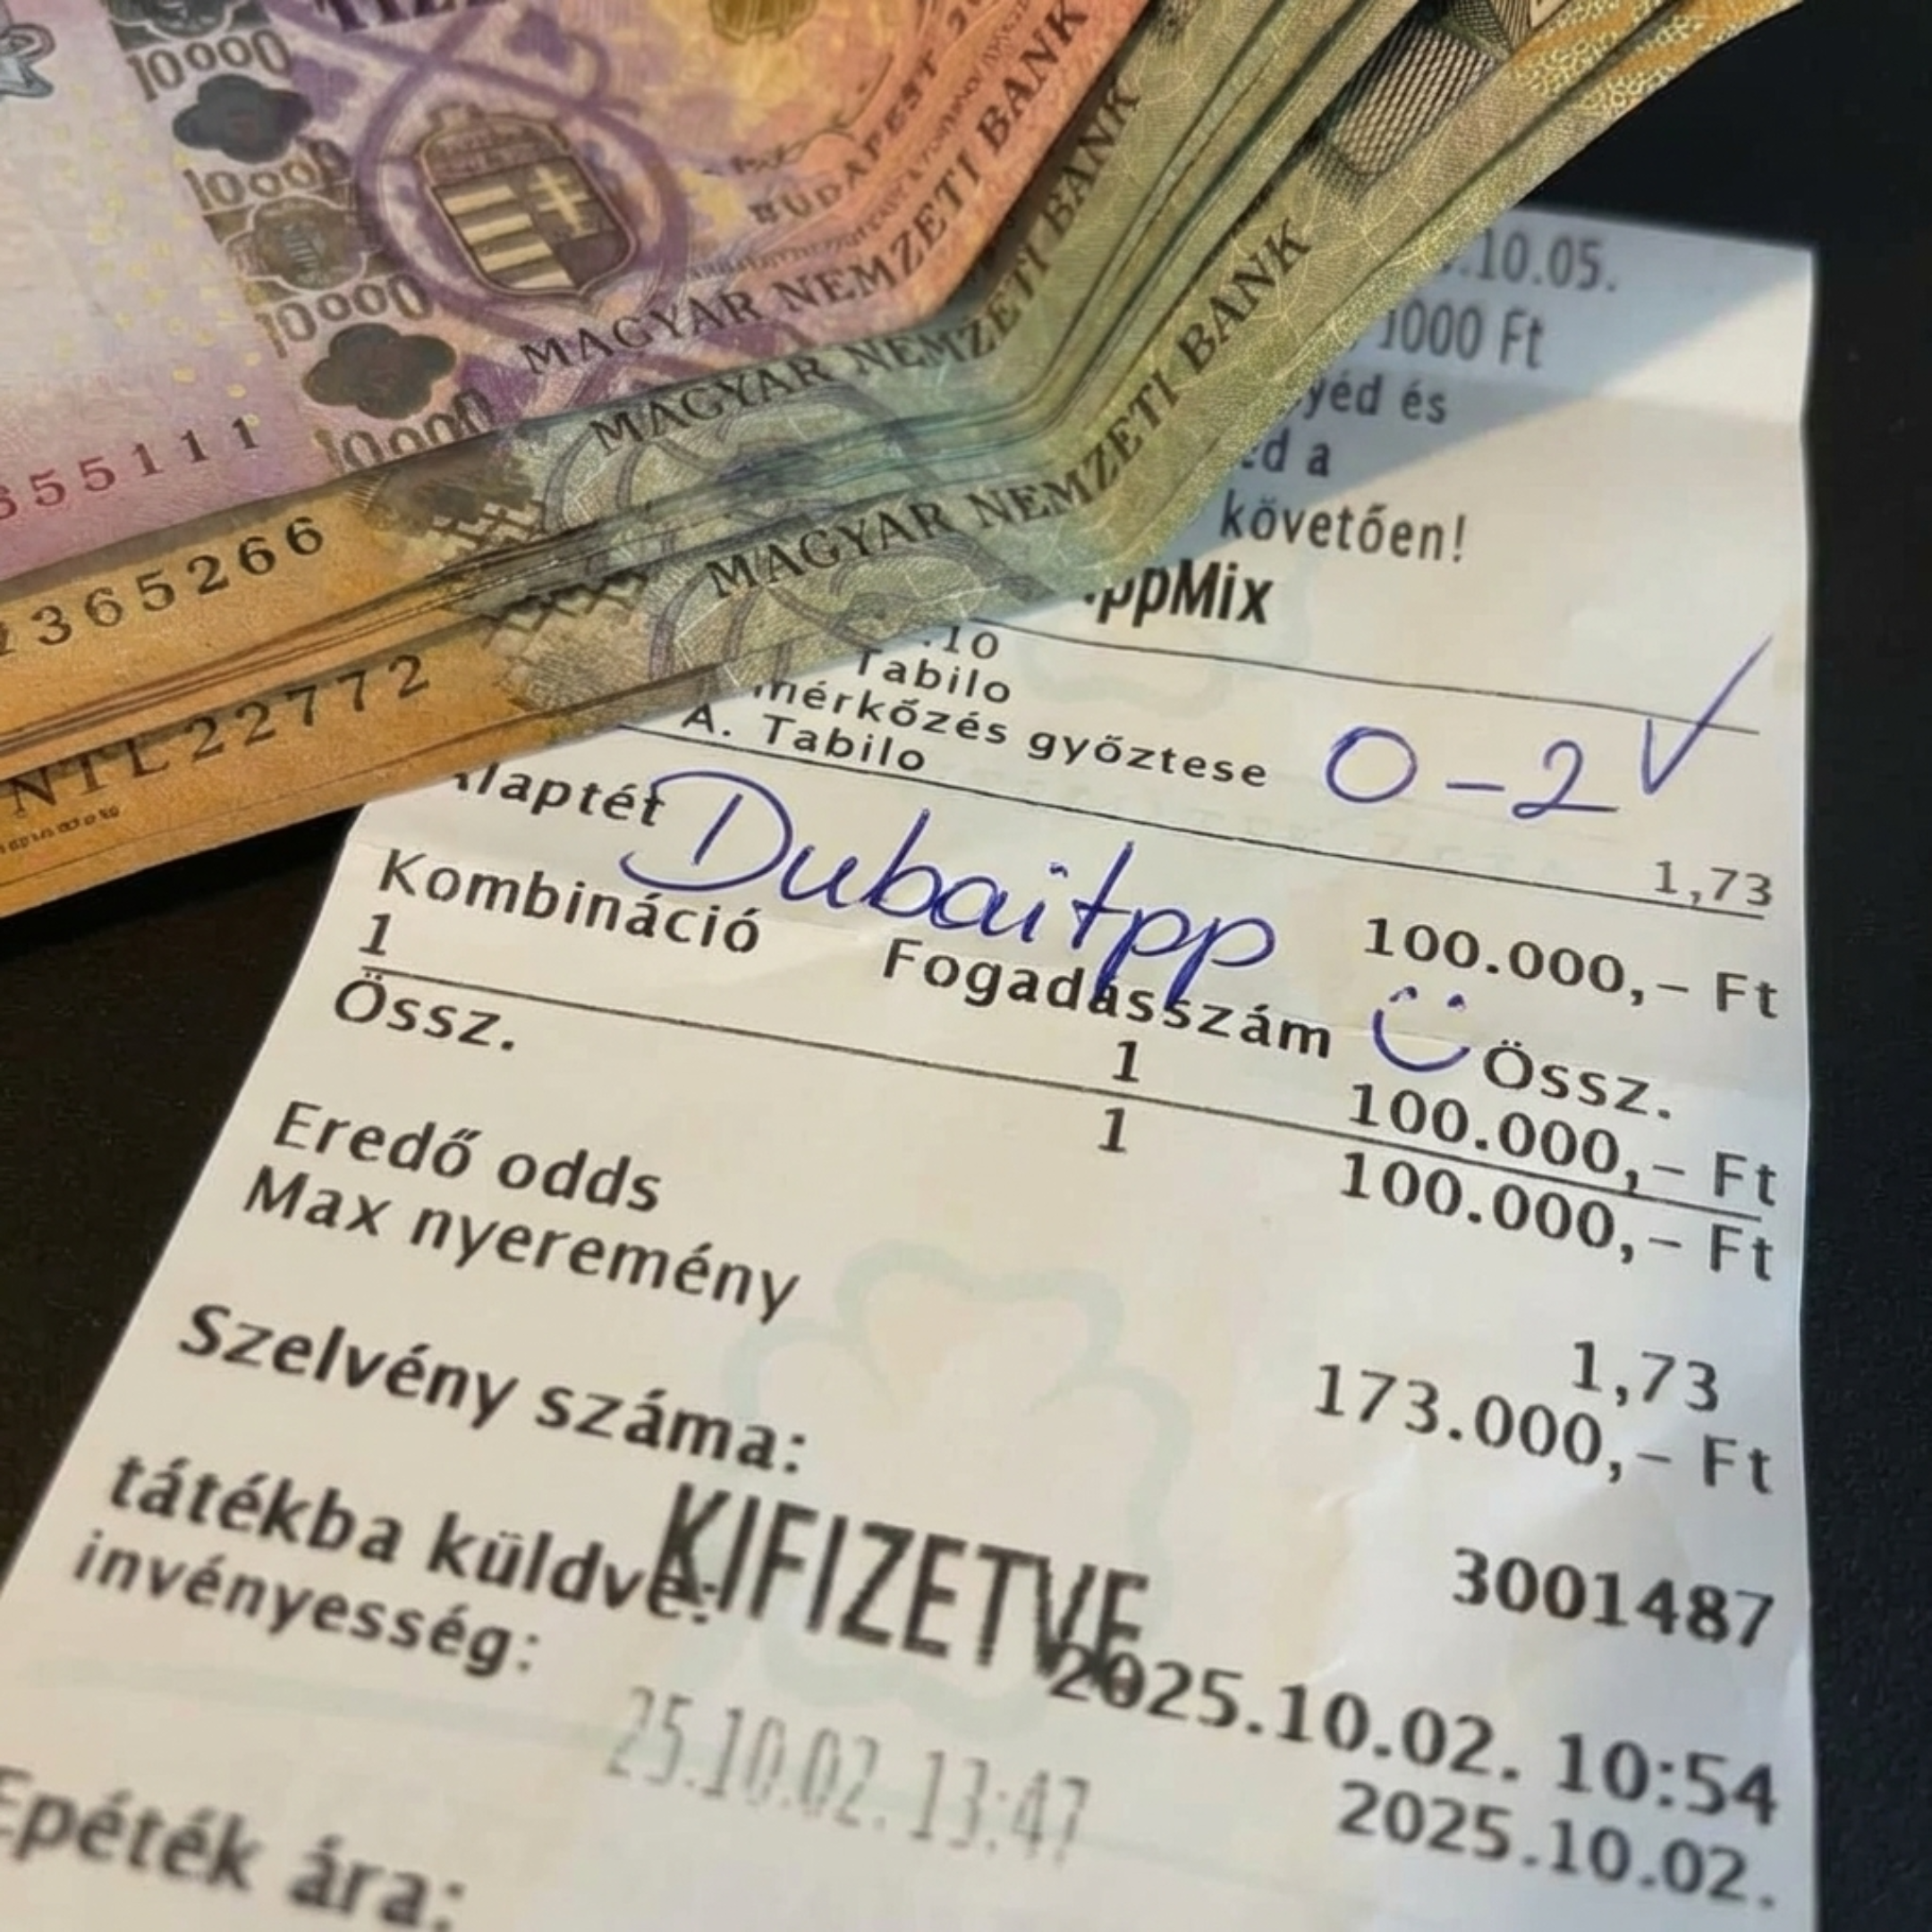 10000
10000
10000
10000
BUDAPEST
MAGYAR NEMZETI BANK
MAGYAR NEMZETI BANK
MAGYAR NEMZETI BANK
55111
365266
NTL22772
.10.05.
1000 Ft
yéd és
ed a
követően!
ppMix
.10
Tabilo
mérkőzés győztese 0-2 ✓
A. Tabilo
1,73
laptét 100.000,- Ft
Dubaitpp
Kombináció Fogadásszám Össz.
1 1 100.000,- Ft
Össz. 1 100.000,- Ft
Eredő odds 1,73
Max nyeremény 173.000,- Ft
Szelvény száma: 3001487
KIFIZETVE
tátékba küldve: 2025.10.02. 10:54
invényesség: 2025.10.02.
25.10.02. 13:47
Epéték ára: